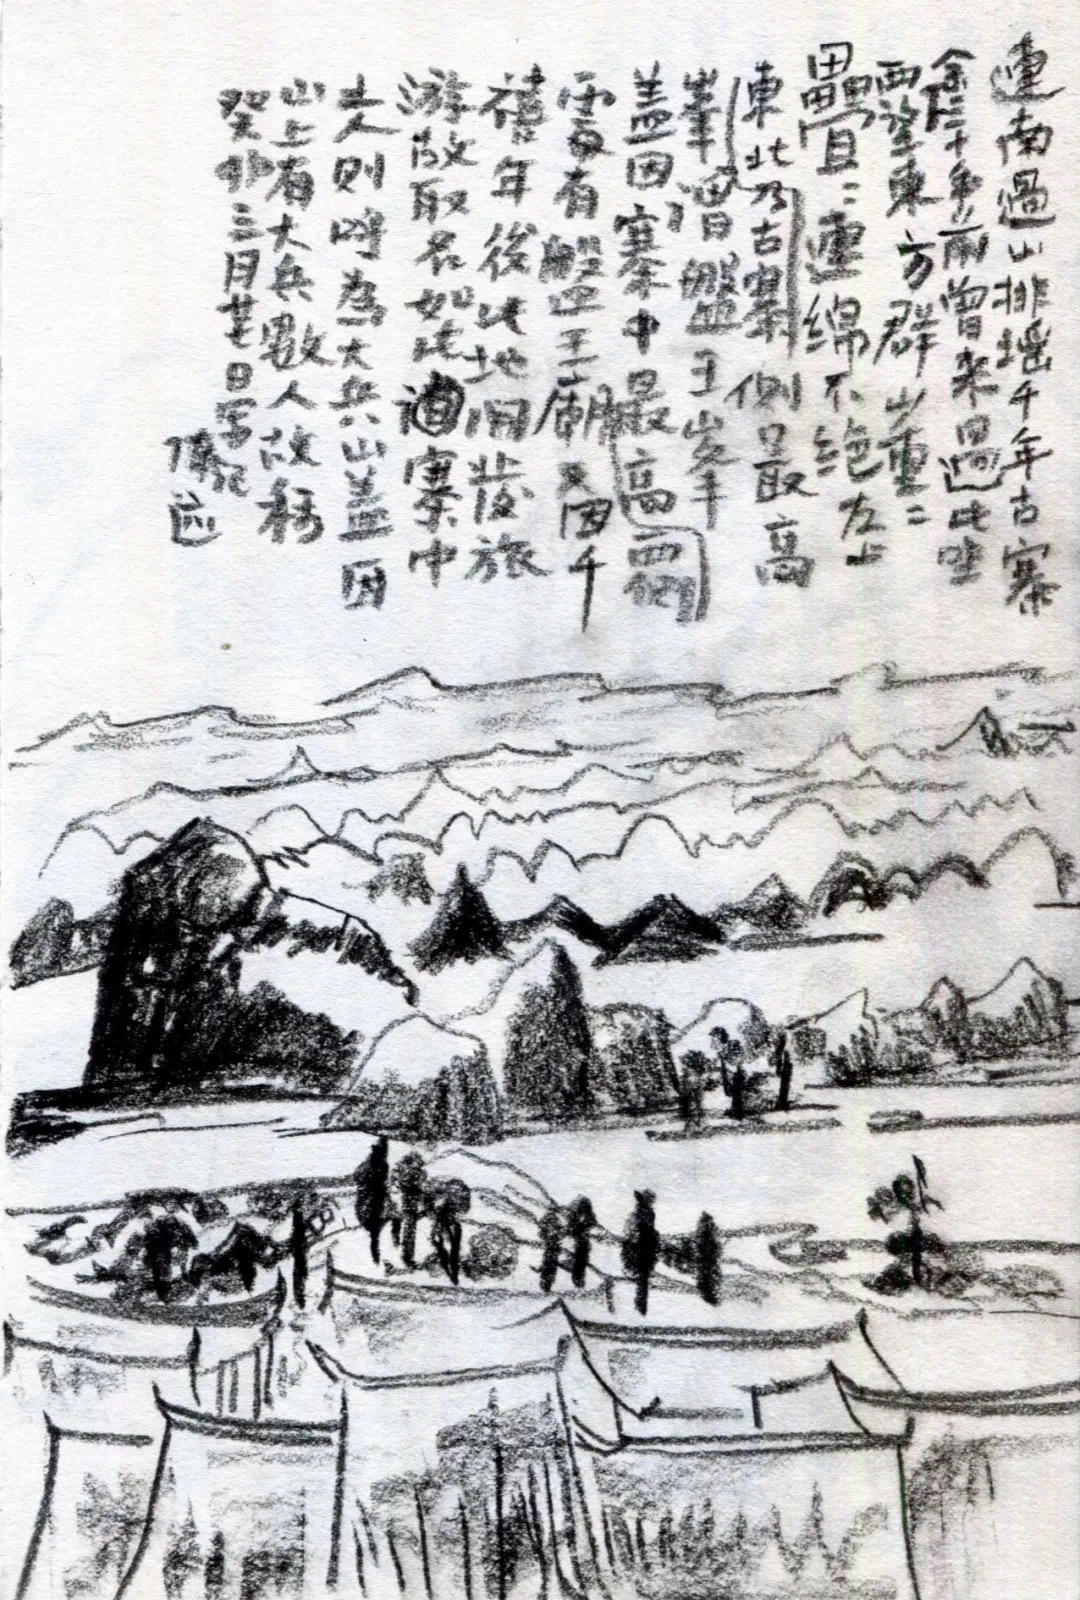 連南過山排瑶千年古寨
余三十年前曾来過此坐
西望東方群山重〻
疊疊〻連綿不绝左上
東北乃古寨側最高
峯曰盤王峯
盖因寨中最高
處有盤王廟又因千
禧年後此地開發旅
游故取名如此寨中
老人則呼為大兵山盖因
山上有大兵數人故称
癸卯三月廿日写记